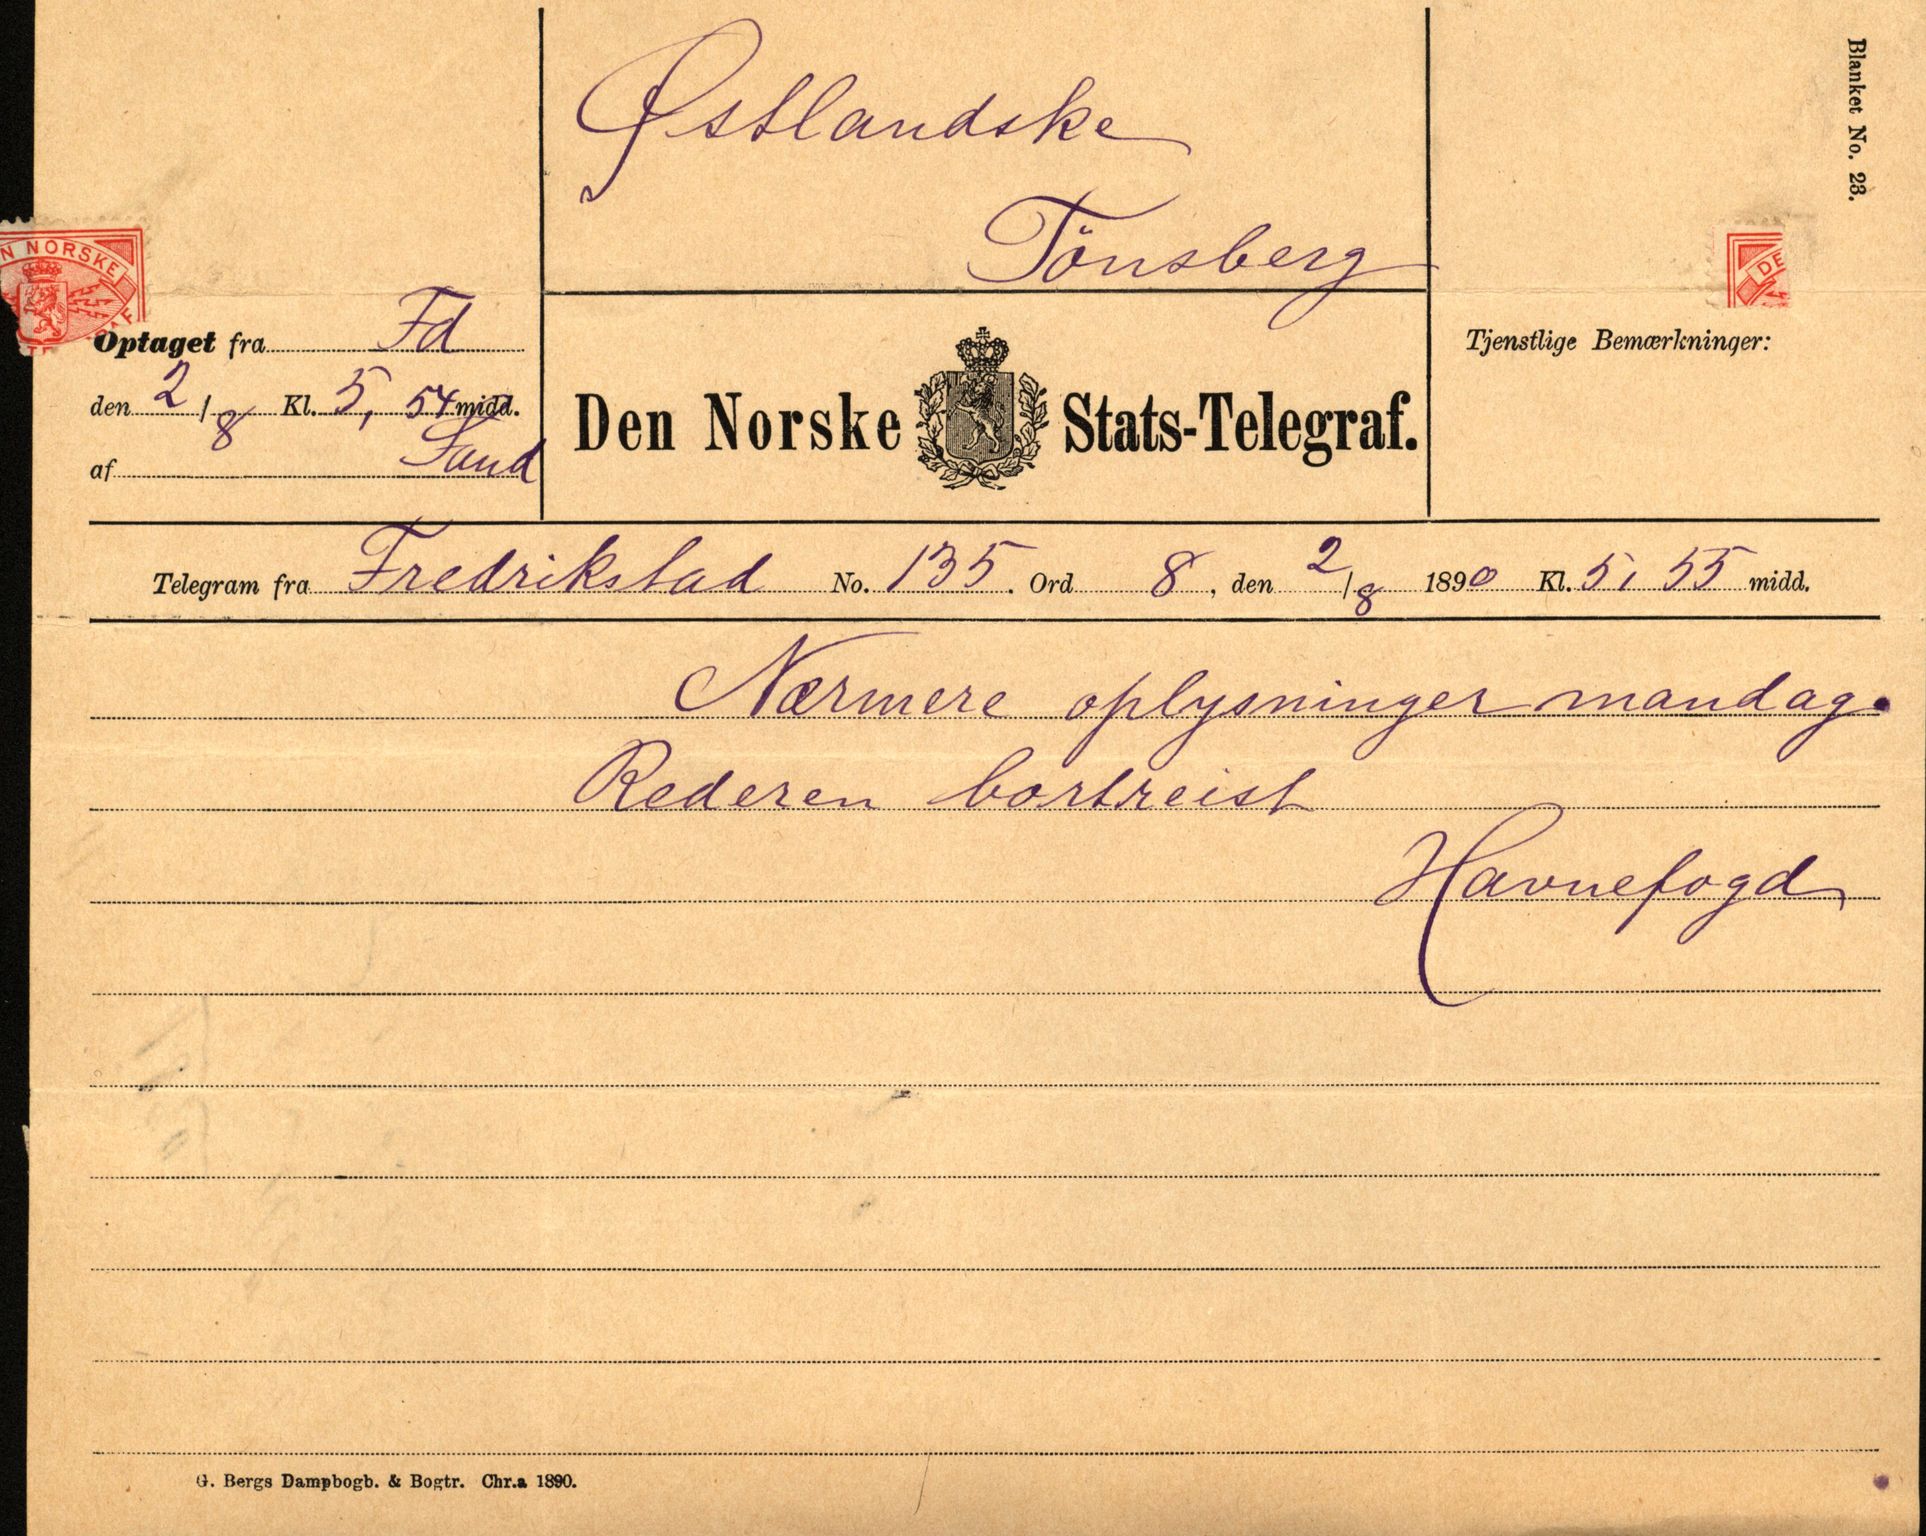 Blanket No. 23.
Østlandske
Tönsberg
N NORSKE
DE
Optaget fra Fd
den 2/8 Kl. 5,54 midd.
af Sand
Den Norske Stats-Telegraf.
Tjenstlige Bemærkninger:
Telegram fra Fredrikstad No. 135. Ord 8, den 2/8 1890 Kl. 5,55 midd.
Nærmere oplysninger mandag.
Rederen bortreist
Havnefogd
G. Bergs Dampbogb. & Bogtr. Chr.a 1890.